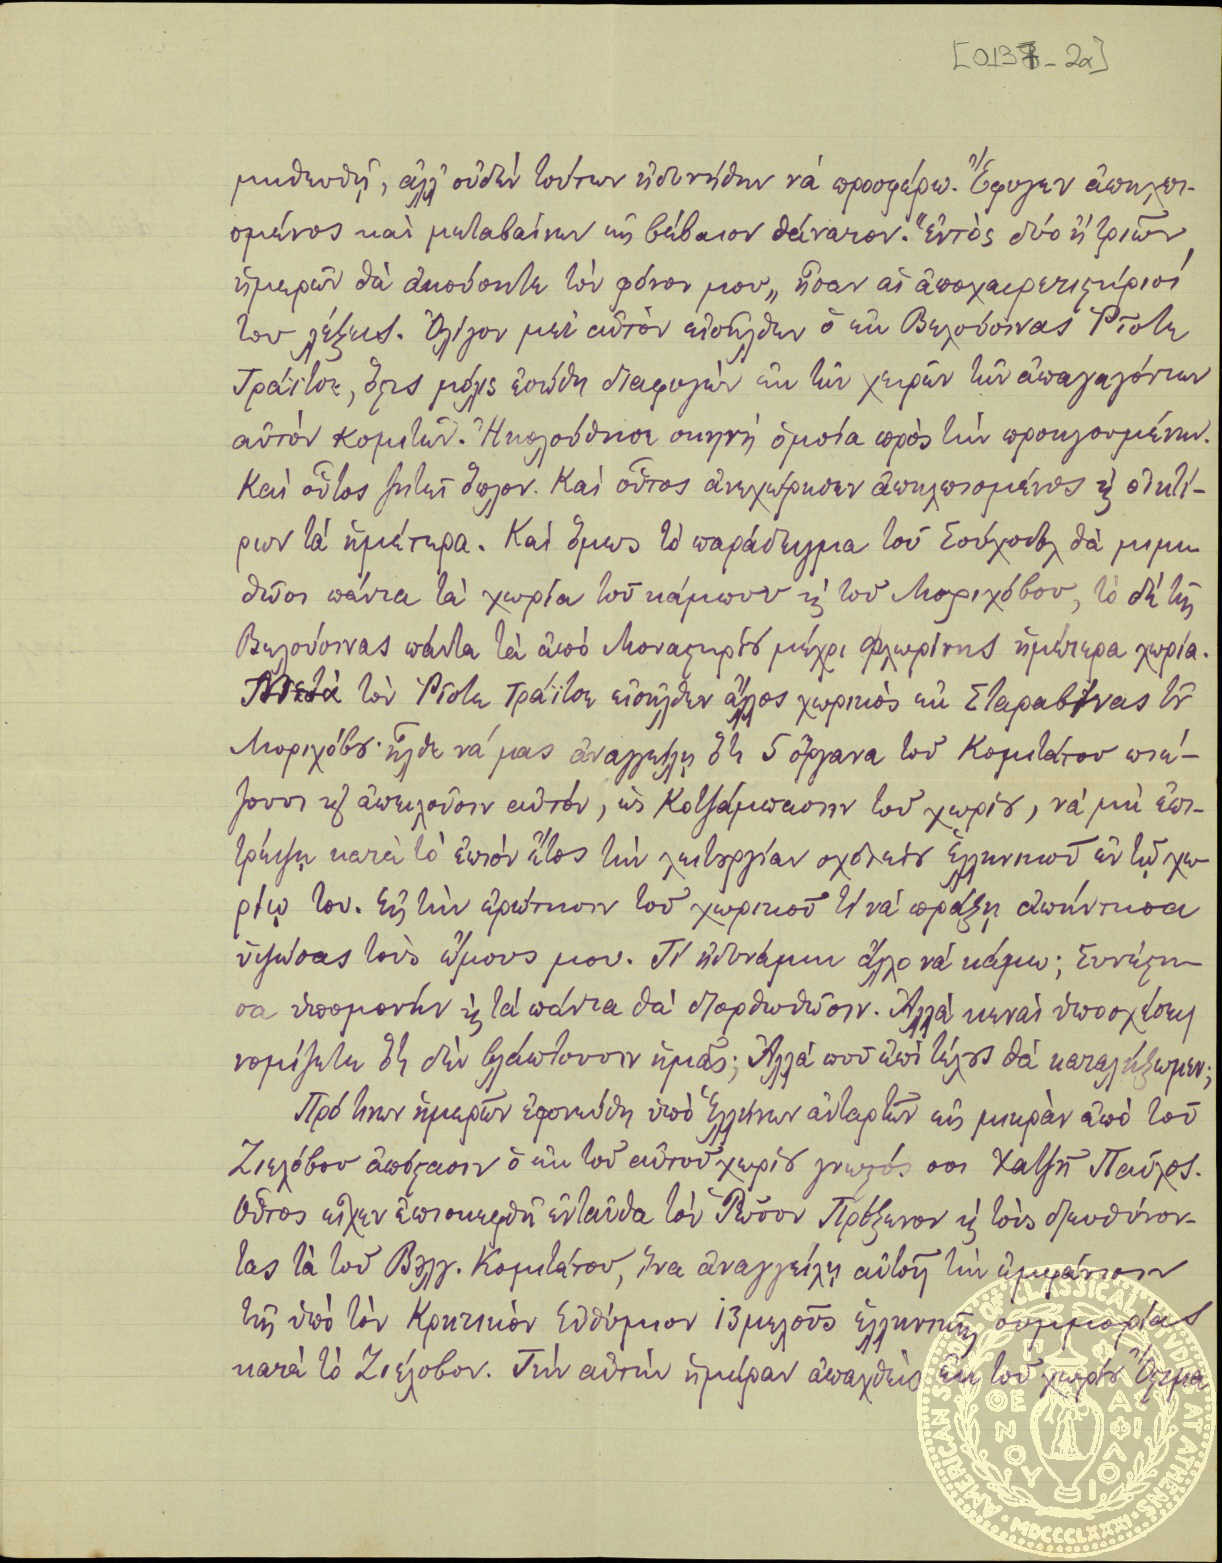 [0137-2α]
μηθευθῇ, ἀλλ' οὐδὲν τούτων ἠδυνήθην νὰ προσφέρω. Ἔφυγεν ἀπηλπι-
σμένος καὶ μεταβαίνων εἰς βέβαιον θάνατον. "Ἐντὸς δύο ἢ τριῶν
ἡμερῶν θὰ ἀκούσητε τὸν φόνον μου„ ἦσαν αἱ ἀποχαιρετιστήριοί
του λέξεις. Ὀλίγον μετ' αὐτὸν εἰσῆλθεν ὁ ἐκ Βελουσίνας Ρίστε
Τράϊτσε, ὅστις μόλις ἐσώθη διαφυγὼν ἐκ τῶν χειρῶν τῶν ἀπαγαγόντων
αὐτὸν κομιτῶν. Ἠκολούθησε σκηνὴ ὁμοία πρὸς τὴν προηγουμένην.
Καὶ οὗτος ζητεῖ ὅπλον. Καὶ οὗτος ἀνεχώρησεν ἀπηλπισμένος κ οἰκτί-
ρων τὰ ἡμέτερα. Καὶ ὅμως τὸ παράδειγμα τοῦ θὰ μιμη-
θῶσι πάντα τὰ χωρία τοῦ κάμπου κ τοῦ Μοριχόβου, τὸ δὲ τῆς
Βελουσίνας πάντα τὰ ἀπὸ Μοναστηρίου μέχρι Φλωρίνης ἡμέτερα χωρία.
Μετὰ τὸν Ρίστε Τράϊτσε εἰσῆλθεν ἄλλος χωρικὸς ἐκ Σταραβίνας τοῦ
Μοριχόβου· ἦλθε νὰ μας ἀναγγείλῃ ὅτι 5 ὄργανα τοῦ Κομιτάτου πιέ-
ζουσι κ ἀπειλοῦσιν αὐτόν, ὡς Κοτζάμπασην τοῦ χωρίου, νὰ μὴ ἐπι-
τρέψῃ κατὰ τὸ ἐπιὸν ἔτος τὴν λειτουργίαν σχολείου ἑλληνικοῦ ἐν τῷ χω-
ρίῳ του. Εἰς τὴν ἐρώτησιν τοῦ χωρικοῦ τί νὰ πράξῃ ἀπήντησα
ὑψώσας τοὺς ὤμους μου. Τί ἠδυνάμην ἄλλο νὰ κάμω; Συνέστη-
σα ὑπομονὴν κ τὰ πάντα θὰ διορθωθῶσιν. Ἀλλὰ κεναὶ ὑποσχέσεις
νομίζετε ὅτι δὲν βλάπτουσιν ἡμᾶς; Ἀλλὰ ποῦ ἐπὶ τέλους θὰ καταλήξωμεν;
Πρό τινων ἡμερῶν ἐφονεύθη ὑπὸ Ἑλλήνων ἀνταρτῶν εἰς μικρὰν ἀπὸ τοῦ
Ζιελόβου ἀπόστασιν ὁ ἐκ τοῦ αὐτοῦ χωρίου γνωστός σοι Χατζῆ Παῦλος.
Οὗτος εἶχεν ἐπισκεφθῆ ἐνταῦθα τὸν Ρῶσον Πρόξενον κ τοὺς διευθύνον-
τας τὰ τοῦ Βουλγ. Κομιτάτου, ἵνα ἀναγγείλῃ αὐτοῖς τὴν ἐμφάνισιν
τῆς ὑπὸ τὸν Κρητικὸν Εὐθύμιον 13μελοῦς ἑλληνικῆς συμμορίας
κατὰ τὸ Ζιέλοβον. Τὴν αὐτὴν ἡμέραν ἀπαχθεὶς ἐκ τοῦ χωρίου Ὄστιμα
AMERICAN SCHOOL OF CLASSICAL STUDIES AT ATHENS · MDCCCLXXXI ·
ΠΑΡΘΕΝΟΥ ΑΣ ΦΙΛΟΙ